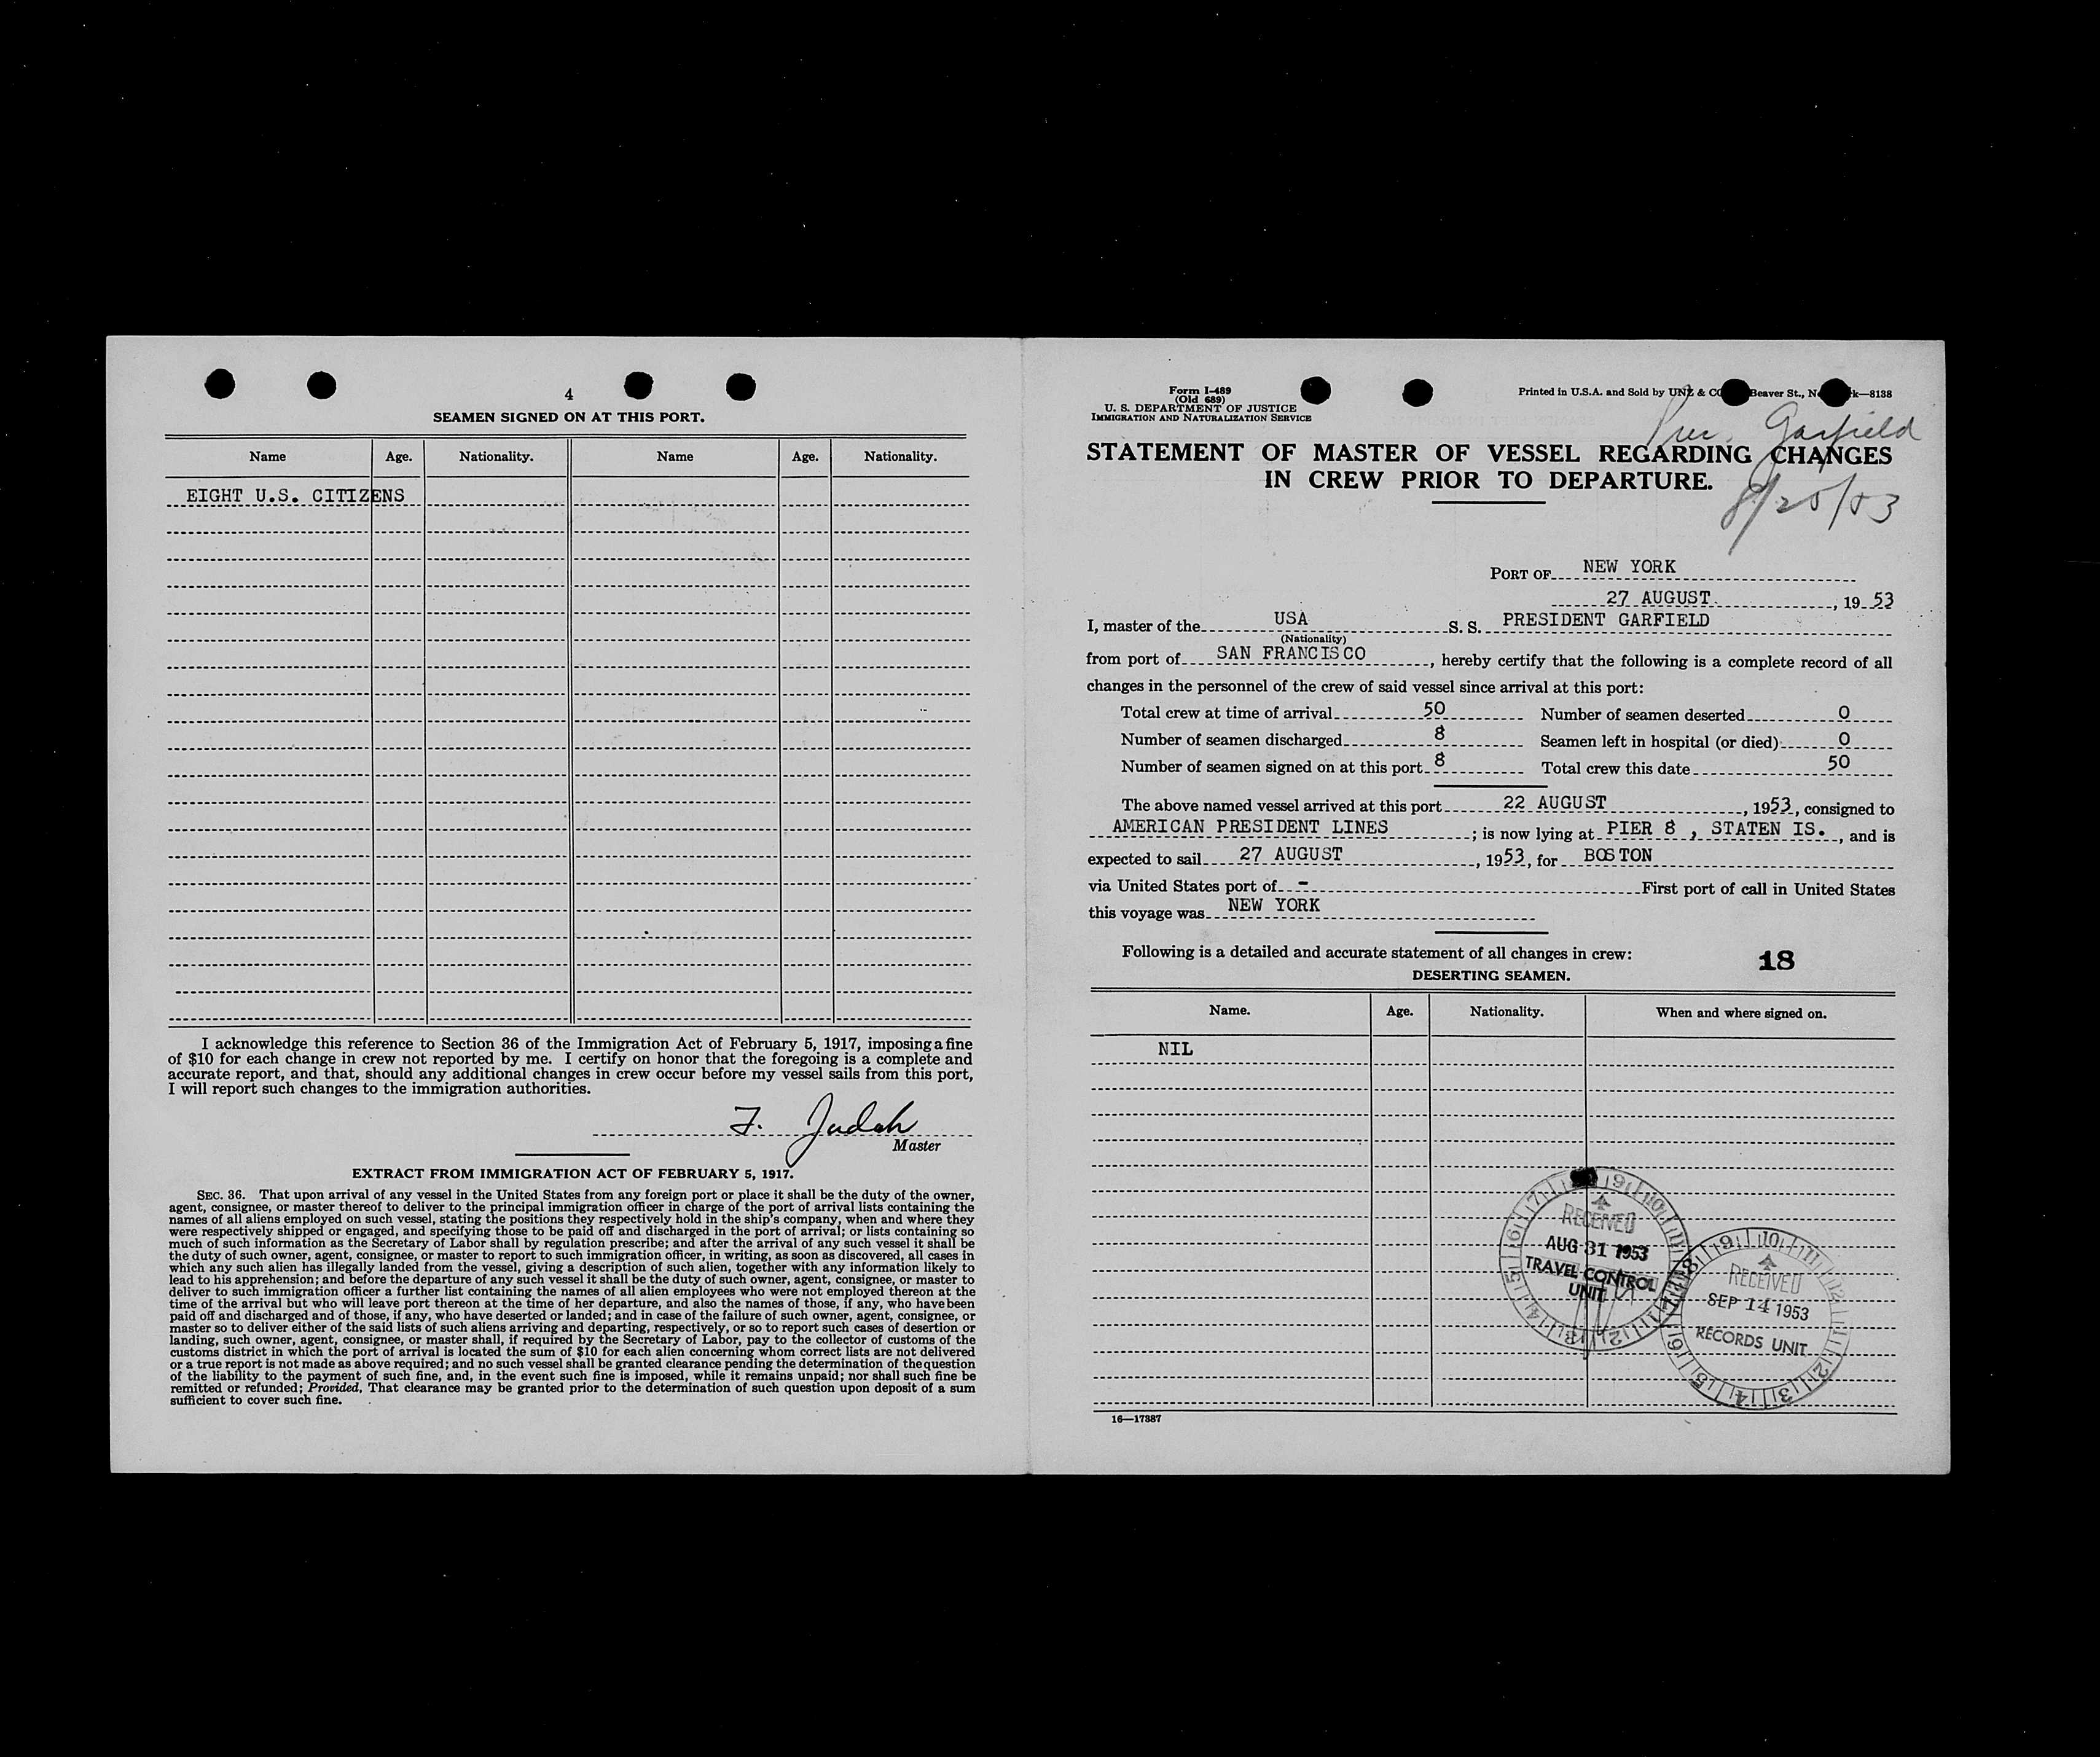 4
SEAMEN SIGNED ON AT THIS PORT.
Name Age. Nationality. Name Age. Nationality.
EIGHT U.S. CITIZENS
I acknowledge this reference to Section 36 of the Immigration Act of February 5, 1917, imposing a fine
of $10 for each change in crew not reported by me. I certify on honor that the foregoing is a complete and
accurate report, and that, should any additional changes in crew occur before my vessel sails from this port,
I will report such changes to the immigration authorities.
F. Judah
Master
EXTRACT FROM IMMIGRATION ACT OF FEBRUARY 5, 1917.
SEC. 36. That upon arrival of any vessel in the United States from any foreign port or place it shall be the duty of the owner,
agent, consignee, or master thereof to deliver to the principal immigration officer in charge of the port of arrival lists containing the
names of all aliens employed on such vessel, stating the positions they respectively hold in the ship's company, when and where they
were respectively shipped or engaged, and specifying those to be paid off and discharged in the port of arrival; or lists containing so
much of such information as the Secretary of Labor shall by regulation prescribe; and after the arrival of any such vessel it shall be
the duty of such owner, agent, consignee, or master to report to such immigration officer, in writing, as soon as discovered, all cases in
which any such alien has illegally landed from the vessel, giving a description of such alien, together with any information likely to
lead to his apprehension; and before the departure of any such vessel it shall be the duty of such owner, agent, consignee, or master to
deliver to such immigration officer a further list containing the names of all alien employees who were not employed thereon at the
time of the arrival but who will leave port thereon at the time of her departure, and also the names of those, if any, who have been
paid off and discharged and of those, if any, who have deserted or landed; and in case of the failure of such owner, agent, consignee, or
master so to deliver either of the said lists of such aliens arriving and departing, respectively, or so to report such cases of desertion or
landing, such owner, agent, consignee, or master shall, if required by the Secretary of Labor, pay to the collector of customs of the
customs district in which the port of arrival is located the sum of $10 for each alien concerning whom correct lists are not delivered
or a true report is not made as above required; and no such vessel shall be granted clearance pending the determination of the question
of the liability to the payment of such fine, and, in the event such fine is imposed, while it remains unpaid; nor shall such fine be
remitted or refunded; Provided, That clearance may be granted prior to the determination of such question upon deposit of a sum
sufficient to cover such fine.
Form I-489
(Old 689)
U. S. DEPARTMENT OF JUSTICE
IMMIGRATION AND NATURALIZATION SERVICE
Printed in U.S.A. and Sold by UNZ & CO Beaver St., N k—8138
Pres. Garfield
8/25/53
STATEMENT OF MASTER OF VESSEL REGARDING CHANGES
IN CREW PRIOR TO DEPARTURE.
PORT OF NEW YORK
27 AUGUST, 1953
I, master of the USA S. S. PRESIDENT GARFIELD
(Nationality)
from port of SAN FRANCISCO, hereby certify that the following is a complete record of all
changes in the personnel of the crew of said vessel since arrival at this port:
Total crew at time of arrival 50 Number of seamen deserted 0
Number of seamen discharged 8 Seamen left in hospital (or died) 0
Number of seamen signed on at this port 8 Total crew this date 50
The above named vessel arrived at this port 22 AUGUST, 1953, consigned to
AMERICAN PRESIDENT LINES; is now lying at PIER 8, STATEN IS., and is
expected to sail 27 AUGUST, 1953, for BOSTON
via United States port of - First port of call in United States
this voyage was NEW YORK
Following is a detailed and accurate statement of all changes in crew:
18
DESERTING SEAMEN.
Name. Age. Nationality. When and where signed on.
NIL
RECEIVED
AUG 31 1953
TRAVEL CONTROL
UNIT
RECEIVED
SEP 14 1953
RECORDS UNIT
16—17387